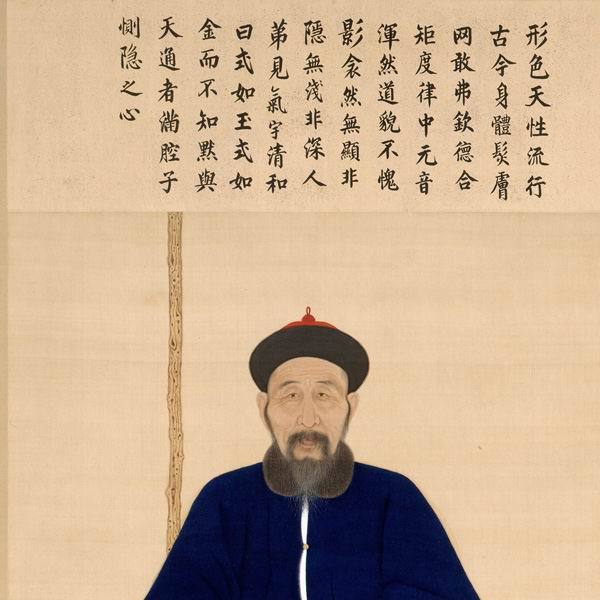 形色天性流行
古今身體髮膚
网敢弗欽德合
矩度律中元音
渾然道貌不愧
影衾然無顯非
隱無淺非深人
苐見氣宇清和
曰式如王式如
金而不知默與
天通者滿腔子
惻隐之心